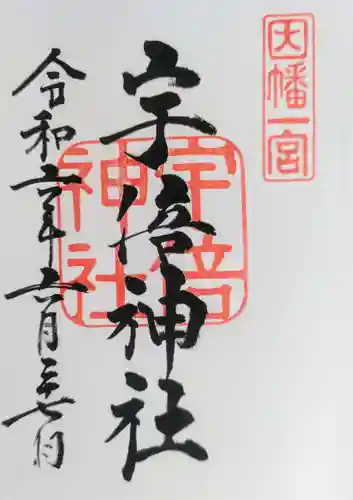 因幡一宮
宇倍神社
宇倍神社
令和六年六月二十七日